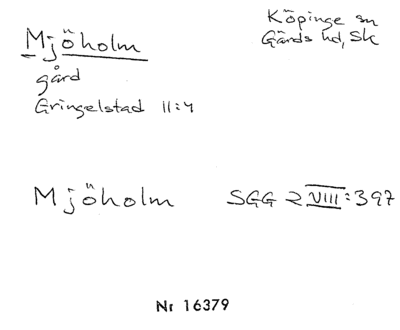 Mjöholm
Köpinge sn
Gärds hd, Sk
gård
Gringelstad 11:4
Mjöholm SGG 2 VIII:397
Nr 16379